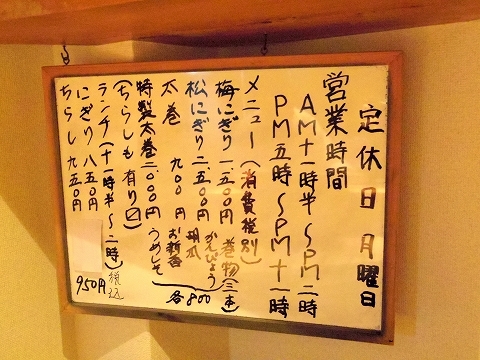 定休日 月曜日
営業時間
AM十一時半〜PM二時
PM五時〜PM十一時
メニュー(消費税別)
梅にぎり 一五〇〇円
松にぎり 二、五〇〇円
太巻 九〇〇円
特製太巻 二、〇〇〇円
(ちらしも有り〼)
巻物(三本)
かんぴょう
胡瓜
お新香
うめしそ
各800
ランチ(十一時半〜二時)
にぎり 八五〇円
ちらし 九五〇円
税込
950円